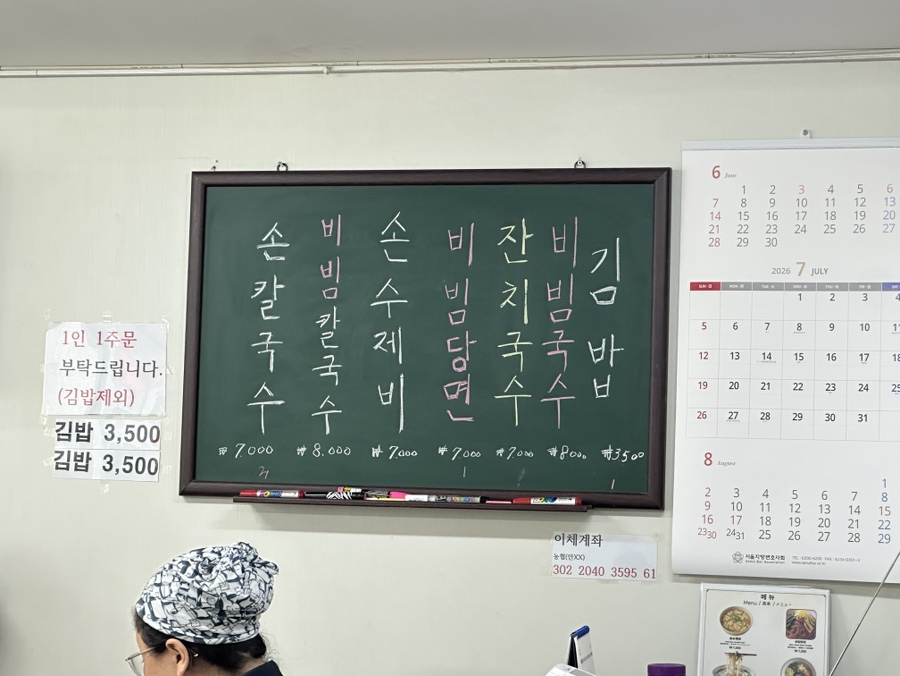 손칼국수
비빔칼국수
손수제비
비빔당면
잔치국수
비빔국수
김밥
₩7.000 ₩8.000 ₩7.000 ₩7.000 ₩7000 ₩8000 ₩3500
1인 1주문
부탁드립니다.
(김밥제외)
김밥 3,500
김밥 3,500
이체계좌
302 2040 3595 61
6 June
1 2 3 4 5 6
7 8 9 10 11 12 13
14 15 16 17 18 19 20
21 22 23 24 25 26 27
28 29 30
2026 7 JULY
1 2 3 4
5 6 7 8 9 10 11
12 13 14 15 16 17 18
19 20 21 22 23 24 25
26 27 28 29 30 31
8 August
1
2 3 4 5 6 7 8
9 10 11 12 13 14 15
16 17 18 19 20 21 22
23 30 24 31 25 26 27 28 29
서울지방변호사회
메뉴
Menu